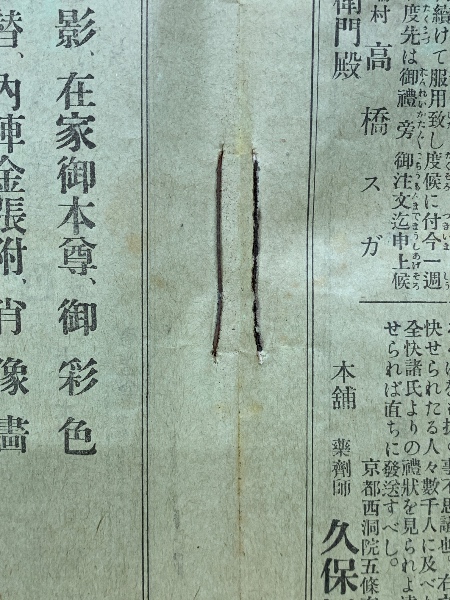 續けて服用致し度候に付今一週
度先は御禮旁御注文迄申上候
村 高橋スガ
衛門殿
快せられたる人々數千人に及べ
全快諸氏よりの禮狀を見られよ
せられば直ちに發送すべし。
京都西洞院五條
本舖 藥劑師 久保
影、在家御本尊、御彩色
替、內陣金張附、肖像畵